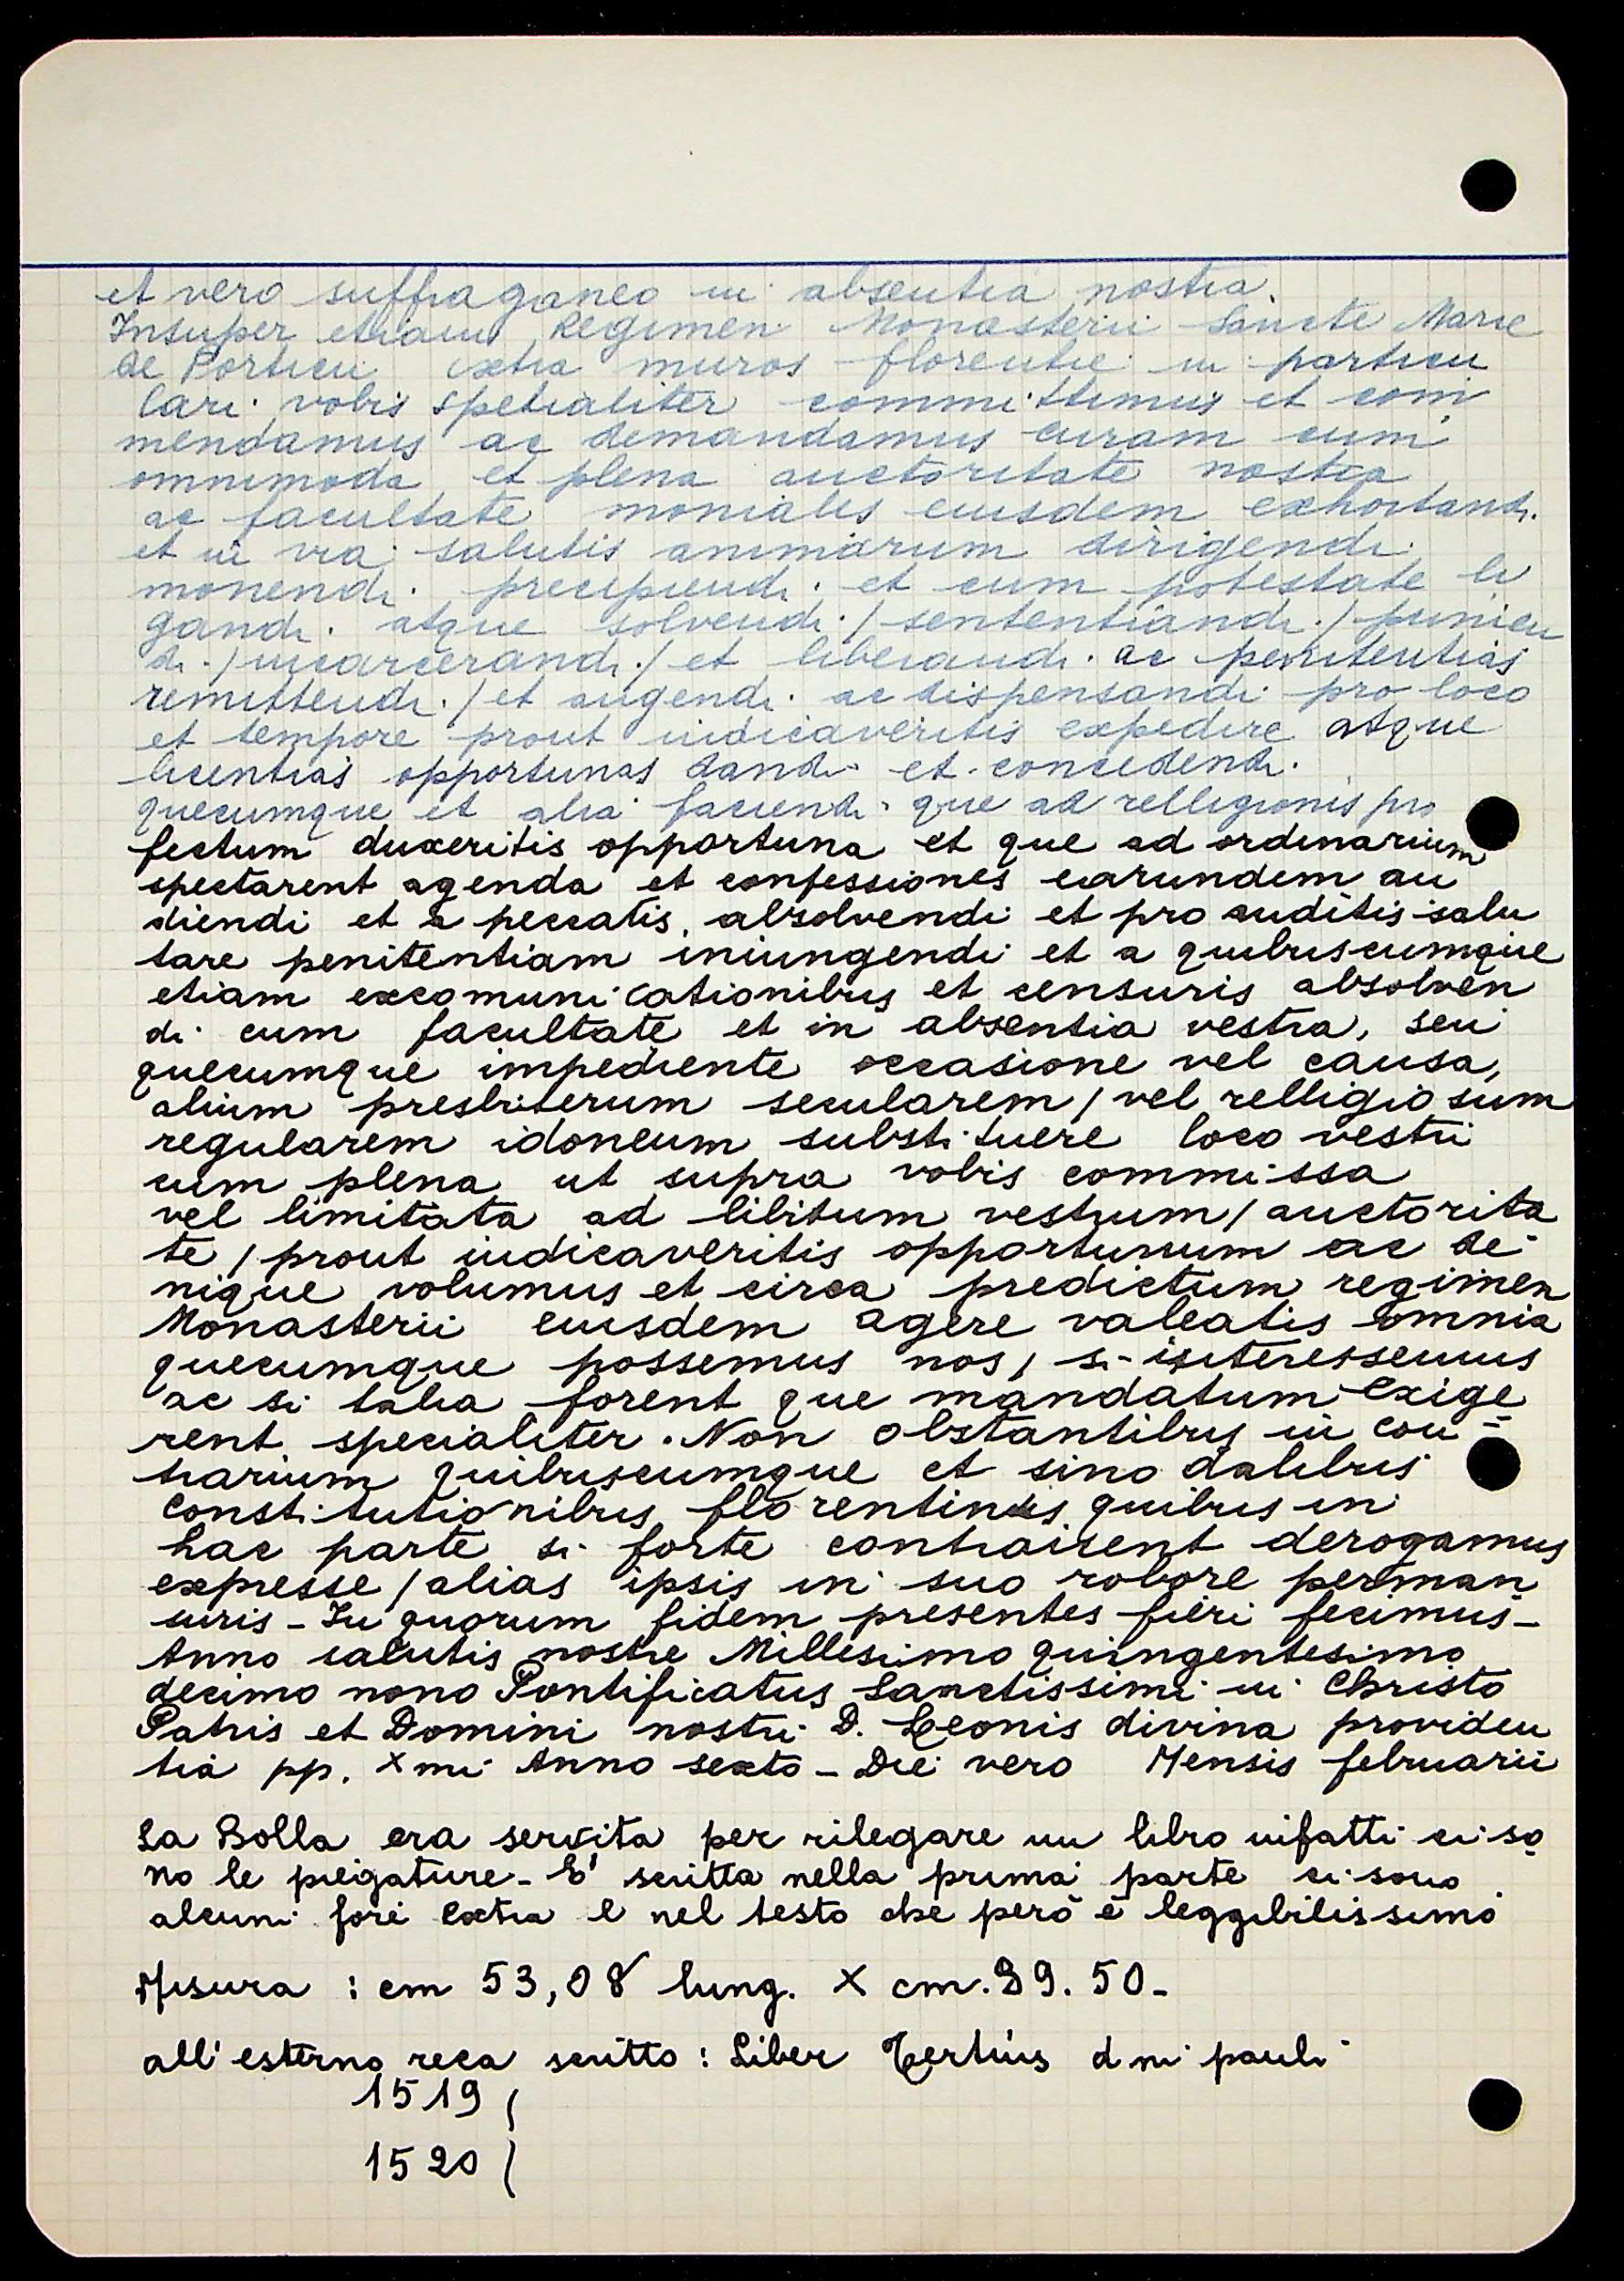 et vero suffraganeo in absentia nostra.
Insuper etiam Regimen Monasterii Sancte Marie
de Porticu extra muros florentie in particu
lari vobis spetialiter committimus et com
mendamus ac demandamus curam cum
omnimoda et plena auctoritate nostra
ac facultate moniales eiusdem exhortandi.
et in via salutis animarum dirigendi.
monendi. precipiendi. et cum potestate li
gandi. atque solvendi. / sententiandi. / punien
di. / incarcerandi. / et liberandi. ac penitentias
remittendi. / et augendi. ac dispensandi pro loco
et tempore prout iudicaveritis expedire atque
licentias opportunas dandi et concedendi.
quecumque et alia faciendi que ad relligionis pro
fectum duxeritis opportuna et que ad ordinarium
spectarent agenda et confessiones earundem au
diendi et a peccatis, absolvendi et pro auditis salu
tare penitentiam iniungendi et a quibuscumque
etiam excomunicationibus et censuris absolven
di cum facultate et in absentia vestra, seu
quecumque impediente occasione vel causa,
alium presbiterum secularem / vel relligiosum
regularem idoneum substituere loco vestri
cum plena ut supra vobis commissa
vel limitata ad libitum vestrum / auctorita
te / prout iudicaveritis opportunum ac de
nique volumus et circa predictum regimen
Monasterii eiusdem agere valeatis omnia
quecumque possemus nos, si interessemus
ac si talia forent que mandatum exige
rent specialiter. Non obstantibus in con=
trarium quibuscumque et sinodalibus
constitutionibus florentinis quibus in
hac parte si forte contrairent derogamus
expresse / alias ipsis in suo robore perman
suris - In quorum fidem presentes fieri fecimus -
Anno salutis nostre Millesimo quingentesimo
decimo nono Pontificatus Sanctissimi in Christo
Patris et Domini nostri D. Leonis divina providen
tia pp. Xmi Anno sexto - Die vero Mensis februarii
La Bolla era servita per rilegare un libro infatti ci so
no le piegature - E' scritta nella prima parte ci sono
alcuni fori extra e nel testo che però è leggibilissimo
Misura : cm 53,08 lung. X cm. 39. 50 -
all'esterno reca scritto : Liber Tertius dni pauli
1519 (
1520 (